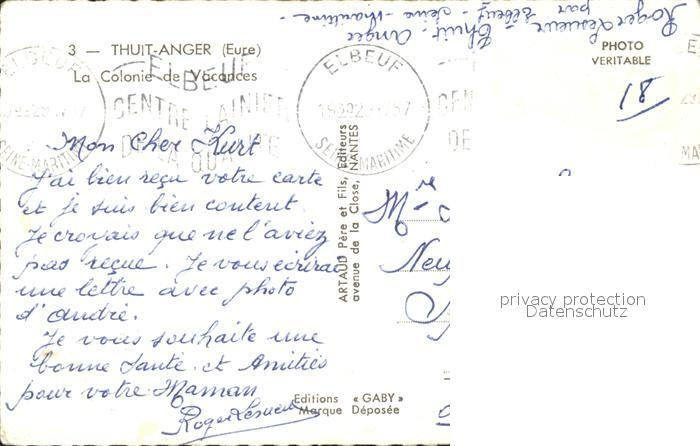 Roger Lesueur
par
Thuit-Anger
Elbeuf
Seine-Maritime
3 — THUIT-ANGER (Eure)
La Colonie de Vacances
PHOTO
VERITABLE
18
ELBEUF
CENTRE LAINIER
DE LA QUALITE
ELBEUF
SEINE-MARITIME
Mon Cher Kurt
J'ai bien reçu votre carte
et je suis bien content.
Je croyais que ne l'aviez
pas reçue. Je vous écrirai
une lettre avec photo
d'andré.
Je vous souhaite une
bonne santé et Amitiés
pour votre Maman
Roger Lesueur
ARTAUD Père et Fils, Editeurs
avenue de la Close, NANTES
Mr
privacy protection
Datenschutz
Editions « GABY »
Marque Déposée